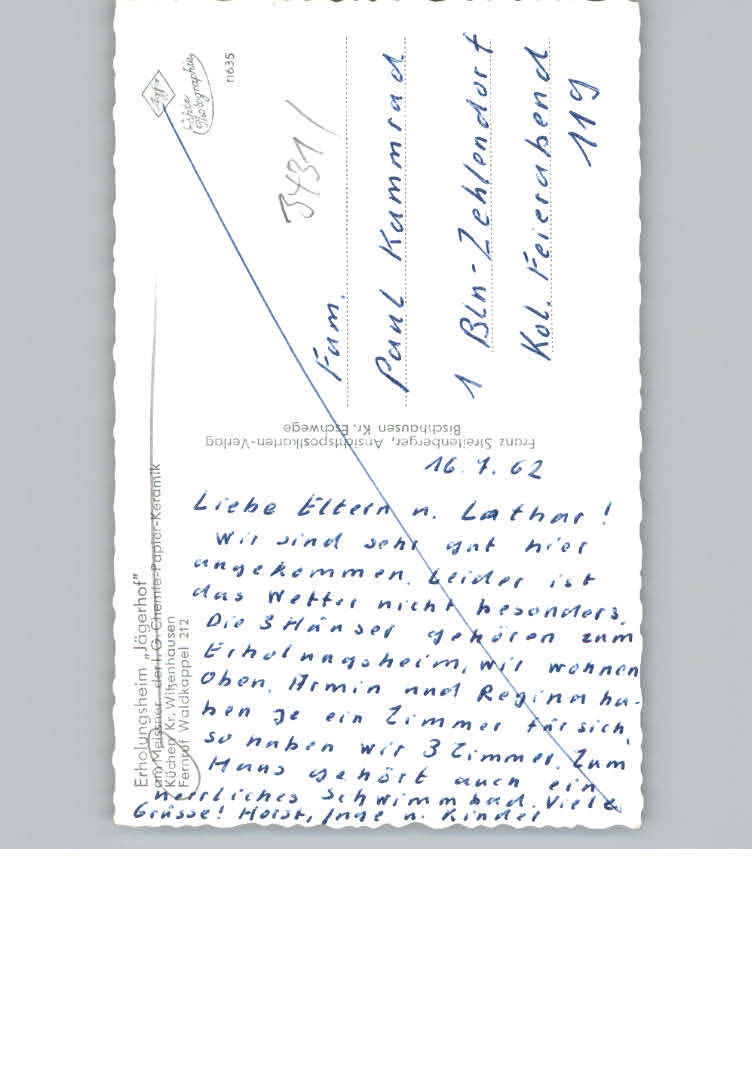 Erholungsheim „Jägerhof"
am Meissner der I. G. Chemie-Papier-Keramik
Küchen Kr. Witzenhausen
Fernruf Waldkappel 212
16. 7. 62
Liebe Eltern u. Lothar!
Wir sind sehr gut hier
angekommen. Leider ist
das Wetter nicht besonders.
Die 3 Häuser gehören zum
Erholungsheim, wir wohnen
oben. Armin und Regina ha-
ben je ein Zimmer für sich,
so haben wir 3 Zimmer. Zum
Haus gehört auch ein
herrliches Schwimmbad. Viele
Grüsse! Horst, Inge u. Kinder
Franz Streitenberger, Ansichtspostkarten-Verlag
Bischhausen Kr. Eschwege
Agfa
Echte
Photographie
n635
3431/
Fam.
Paul Kammrad
1 Bln-Zehlendorf
Kol. Feierabend
119